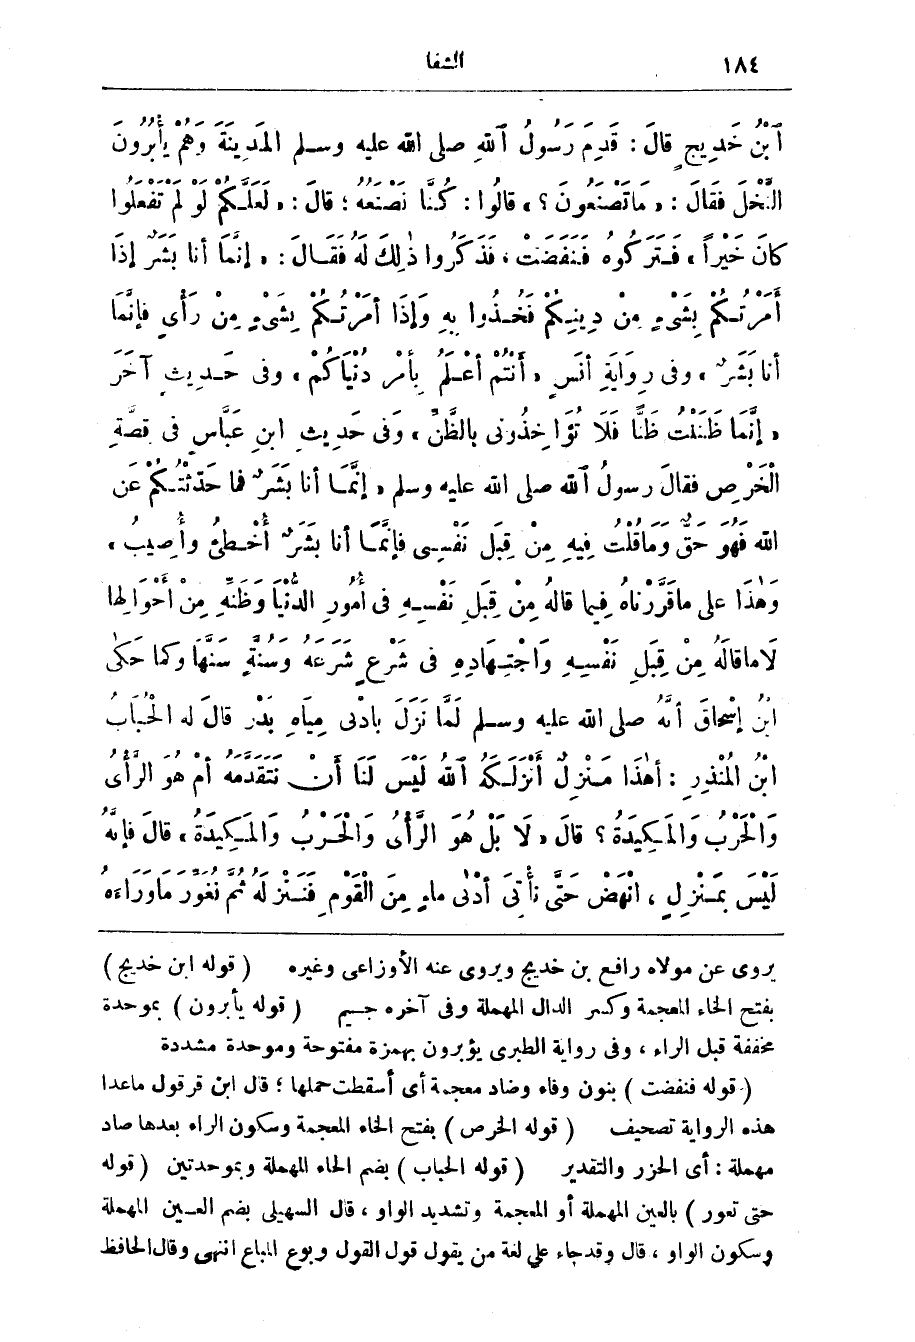 ١٨٤ الشفا
ٱبْنُ خَدِيجٍ قالَ : قَدِمَ رَسُولُ ٱللهِ صلى الله عليه وسلم المَدِينَةَ وَهُمْ يَأْبُرُونَ
النَّخْلَ فَقَالَ : « مَاتَصْنَعُونَ ؟ » قالُوا : كُنَّا نَصْنَعُهُ ؛ قالَ : « لَعَلَّكُمْ لَوْ لَمْ تَفْعَلُوا
كانَ خَيْراً » فَتَرَكُوهُ فَنَفَضَتْ ، فَذَكَرُوا ذٰلِكَ لَهُ فَقَالَ : « إِنَّمَا أنا بَشَرٌ إذَا
أَمَرْتُكُمْ بِشَىْءٍ مِنْ دِينِكُمْ فَخُذُوا بِهِ وَإذَا أمَرْتُكُمْ بِشَىْءٍ مِنْ رَأْيٍ فإنَّمَا
أنا بَشَرٌ » وفى رِوَايَةِ أنَسٍ « أَنْتُمْ أعْلَمُ بِأمْرِ دُنْيَاكُمْ » وفى حَدِيثٍ آخَرَ
« إنَّمَا ظَنَنْتُ ظَنًّا فَلَا تُؤَاخِذُونِى بالظَّنِّ » وَفى حَدِيثِ ابنِ عَبَّاسٍ فى قِصَّةِ
الْخَرْصِ فقالَ رسولُ ٱللهِ صلى الله عليه وسلم « إنَّمَا أنا بَشَرٌ فما حَدَّثْتُكُمْ عَنِ
اللهِ فَهُوَ حَقٌّ وَمَاقُلْتُ فِيهِ مِنْ قِبَلِ نَفْسِى فإنَّمَا أنا بَشَرٌ أُخْطِئُ وأُصِيبُ »
وَهٰذَا على ماقَرَّرْنَاهُ فِيما قالَهُ مِنْ قِبَلِ نَفْسِهِ فى أُمُورِ الدُّنْيَا وَظَنِّهِ مِنْ أحْوَالِها
لَاماقالَهُ مِنْ قِبَلِ نَفْسِهِ وَاجْتِهَادِهِ فى شَرْعٍ شَرَعَهُ وَسُنَّةٍ سَنَّهَا وكما حَكَى
ابنُ إسْحاقَ أنَّهُ صلى الله عليه وسلم لَمَّا نَزَلَ بأدْنَى مِيَاهِ بَدْرٍ قالَ له الْحُبَابُ
ابْنُ الْمُنْذِرِ : أهٰذَا مَنْزِلٌ أَنْزَلَكَهُ ٱللهُ لَيْسَ لَنَا أَنْ نَتَقَدَّمَهُ أمْ هُوَ الرَّأْىُ
وَالْحَرْبُ وَالمَكِيدَةُ ؟ قالَ « لَا بَلْ هُوَ الرَّأْىُ وَالْحَرْبُ وَالمَكِيدَةُ » قالَ فإنَّهُ
لَيْسَ بِمَنْزِلٍ ، انْهَضْ حَتَّى نَأْتِىَ أدْنَى ماءٍ مِنَ الْقَوْمِ فَنَنْزِلَهُ ثُمَّ نُغَوِّرَ مَاوَرَاءَهُ
يروى عن مولاه رافع بن خديج ويروى عنه الأوزاعى وغيره ( قوله ابن خديج )
بفتح الخاء المعجمة وكسر الدال المهملة وفى آخره جيم ( قوله يأبرون ) بموحدة
مخففة قبل الراء ، وفى رواية الطبرى يؤبرون بهمزة مفتوحة وموحدة مشددة
( قوله فنفضت ) بنون وفاء وضاد معجمة أى أسقطت حملها ؛ قال ابن قرقول ماعدا
هذه الرواية تصحيف ( قوله الخرص ) بفتح الخاء المعجمة وسكون الراء بعدها صاد
مهملة : أى الحزر والتقدير ( قوله الحباب ) بضم الحاء المهملة وبموحدتين ( قوله
حتى تعور ) بالعين المهملة أو المعجمة وتشديد الواو ، قال السهيلى بضم العين المهملة
وسكون الواو ، قال وقدجاء على لغة من يقول قول القول وبوع المباع انتهى وقال الحافظ